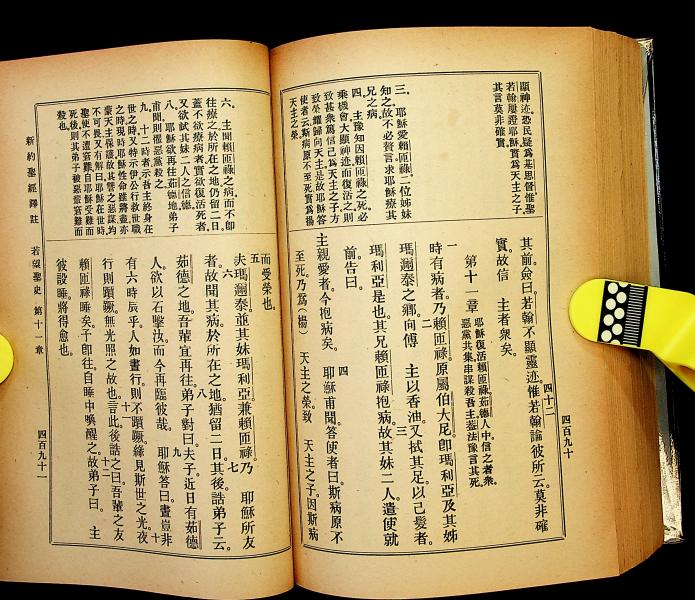 顯神迹恐民疑爲基思督惟聖
若翰屢證耶穌實爲天主之子
其言莫非確實
三。耶穌愛賴匝祿二位姊妹
知之故不必贅言求耶穌療其
兄之病
四。主豫知因賴匝祿之死必
乘機會大顯神迹而復活之則
致甚衆篤信己爲天主之子方
致榮耀歸向天主是故耶穌答
使者云斯病原不至死實爲揚
天主之榮
其前僉曰若翰不顯靈迹惟若翰論彼所云莫非確 四十二
實故信 主者衆矣。
第十一章 耶穌復活賴匝祿茹德人中信之者衆。
惡黨共集串謀殺吾主蓋法豫言其死
一 時有病者乃賴匝祿原屬伯大尼卽瑪利亞及其姊
瑪邇泰之鄉向傅 二 主以香油又拭其足以己髮者
瑪利亞是也其兄賴匝祿抱病故其妹二人遣使就 三
前告曰。
主親愛者今抱病矣。 四 耶穌甫聞答使者曰斯病原不
至死乃爲(揚)天主之榮致 天主之子因斯病
四百九十
六。主聞賴匝祿之病而不卽
往療之於所在之地仍留二日
蓋不欲療病者實欲復活死者
又欲試其妹二人之信德
八。耶穌欲再往茹德地弟子
甫聞則懼惡黨殺之
九。十二時者示吾主終身在
世之時又特示伊公行救世職
之時現時耶穌性命雖將盡亦
蒙天主保護故其讐之惡謀均
不可畏又有解曰耶穌在世時
聖使不遭窘難自耶穌受難而
死後則其弟子被惡黨窘難而
殺也
而受榮也。
五 夫瑪邇泰並其妹瑪利亞兼賴匝祿乃 耶穌所友
六 者故聞其病於所在之地猶留二日其後誥弟子云 七
茹德之地吾輩宜再往弟子對曰夫子近日有茹德 八
人欲以石擊汝而今再臨彼哉。 九 耶穌答曰晝豈非
有六時辰乎人如晝行則不躓蹶緣見斯世之光夜 十
行則躓蹶無光照之故也言此後誥之曰吾輩之友 十一
賴匝祿睡矣予卽往自睡中喚醒之故弟子曰。 十二 主
彼設睡將得愈也。
新約聖經譯註 若望聖史 第十一章 四百九十一